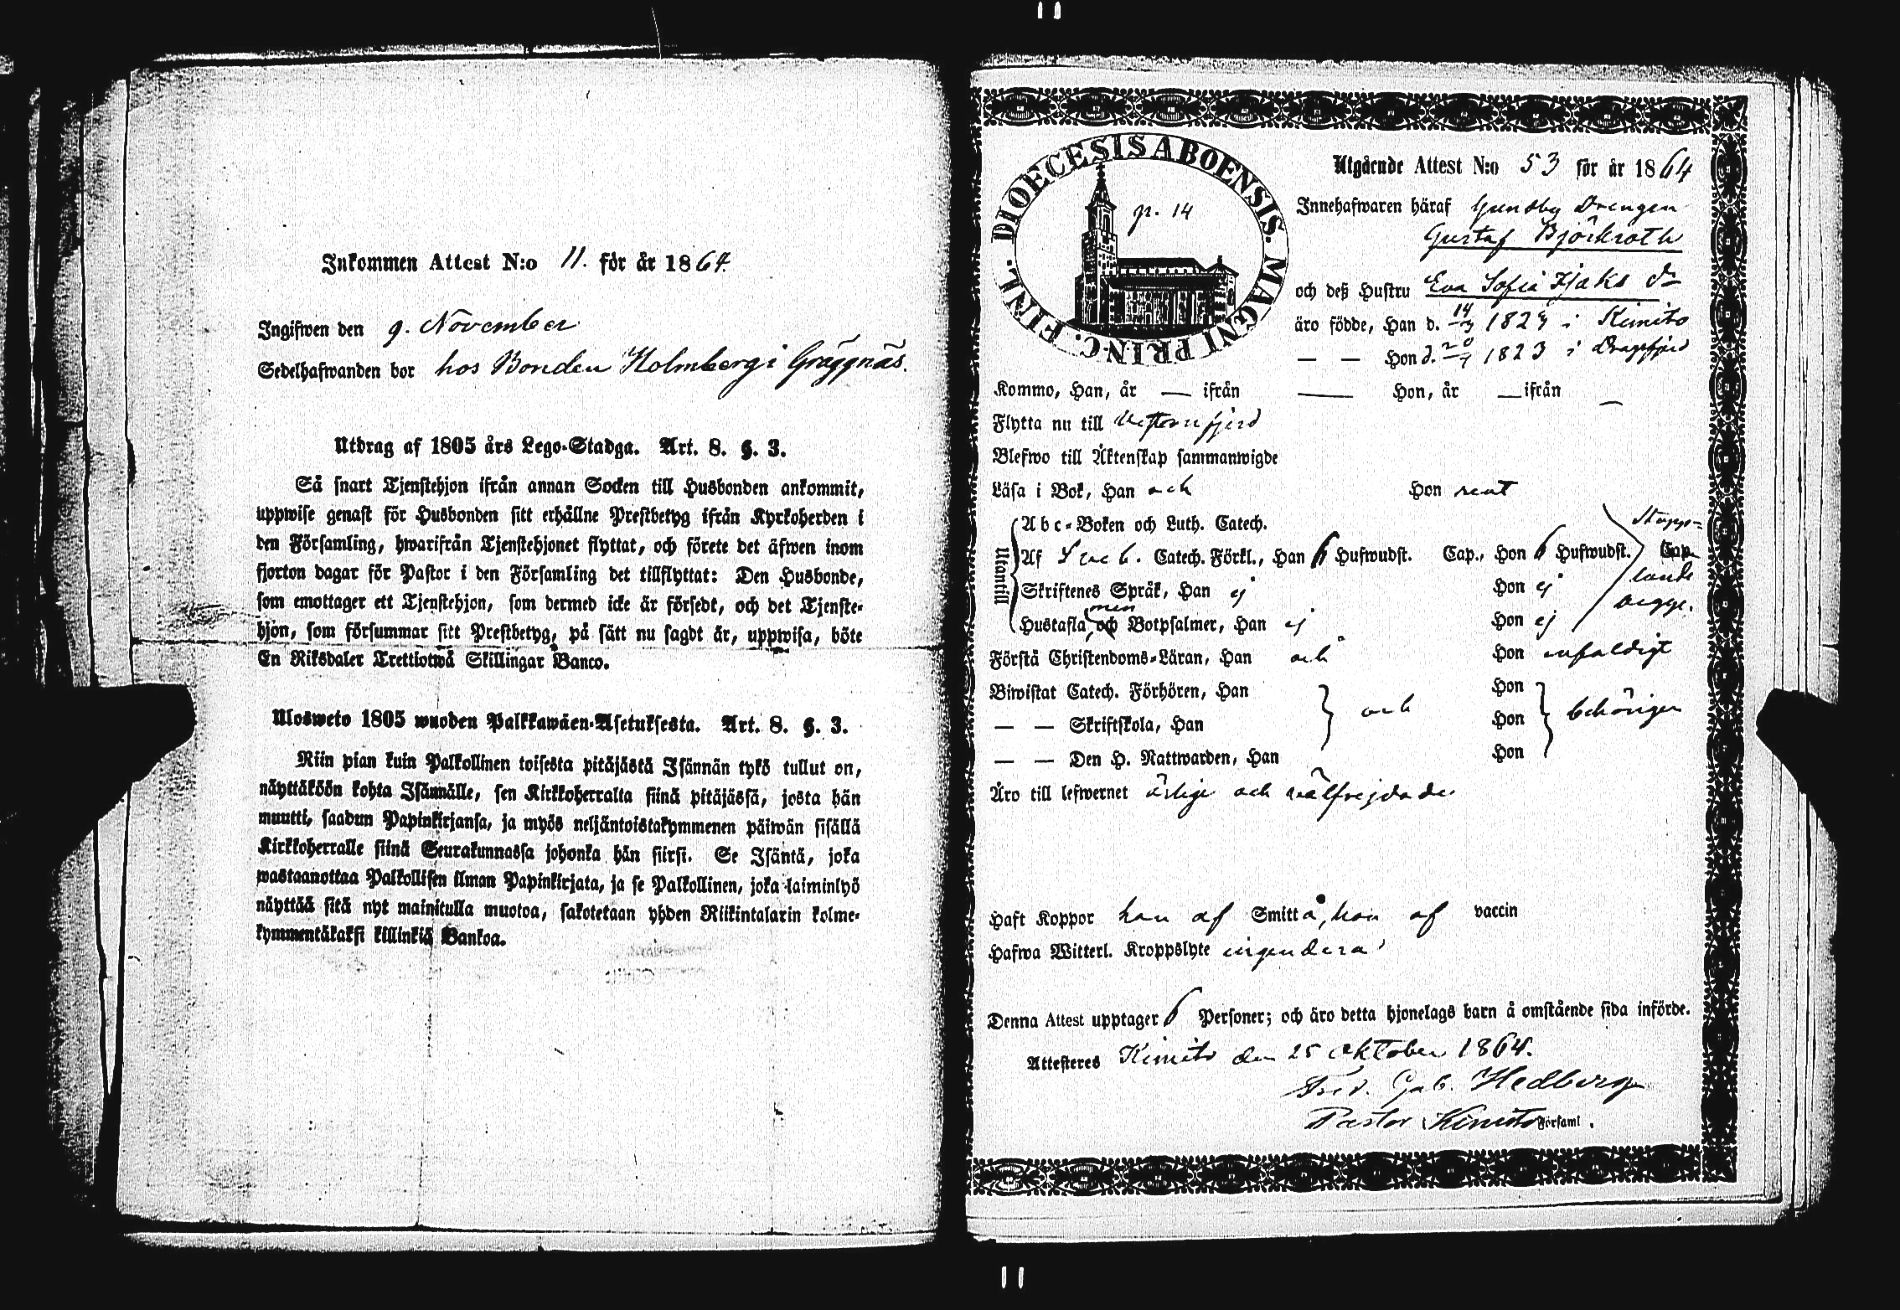 Inkommen Attest N:o 11. för år 1864.
Ingifwen den 9. November
Sedelhafwanden bor hos Bonden Holmberg i Gräggnäs.
Utdrag af 1805 års Lego-Stadga. Art. 8. §. 3.
Så snart Tjenstehjon ifrån annan Socken till Husbonden ankommit,
uppwise genast för Husbonden sitt erhållne Prestbetyg ifrån Kyrkoherden i
den Församling, hwarifrån Tjenstehjonet flyttat, och förete det äfwen inom
fjorton dagar för Pastor i den Församling det tillflyttat: Den Husbonde,
som emottager ett Tjenstehjon, som dermed icke är försedt, och det Tjenste-
hjon, som försummar sitt Prestbetyg, på sätt nu sagdt är, uppwisa, böte
En Riksdaler Trettiotwå Skillingar Banco.
Ulosweto 1805 wuoden Palkkawäen-Asetuksesta. Art. 8. §. 3.
Niin pian kuin Palkollinen toisesta pitäjästä Isännän tykö tullut on,
näyttäköön kohta Isännälle, sen Kirkkoherralta siinä pitäjässä, josta hän
muutti, saadun Papinkirjansa, ja myös neljäntoistakymmenen päiwän sisällä
Kirkkoherralle siinä Seurakunnassa johonka hän siirsi. Se Isäntä, joka
wastaanottaa Palkollisen ilman Papinkirjata, ja se Palkollinen, joka laiminlyö
näyttää sitä nyt mainitulla muotoa, sakotetaan yhden Riikintalarin kolme-
kymmentäkaksi killinkiä Bankoa.
DIOECESIS ABOENSIS. MAGNI PRINC. FINL.
p. 14
Utgående Attest N:o 53 för år 1864
Innehafwaren häraf Gundby Drengen
Gustaf Björkroth
och deß Hustru Eva Sofia Isaks dr
äro födde, Han d. 14 182 i Kimito
— — Hon d. 20 1823 i Dragsfjerd
Kommo, Han, år — ifrån — Hon, år — ifrån —
Flytta nu till Vestanfjerd
Blefwo till Äktenskap sammanwigde
Läsa i Bok, Han och Hon rent
Utantill
Abc-Boken och Luth. Catech.
Af Sveb. Catech. Förkl., Han 6 Hufwudst. Cap., Hon 6 Hufwudst. Cap.
Stapp-
lande
begge.
Skriftenes Språk, Han ej Hon ej
men
Hustafla, och Botpsalmer, Han ej Hon ej
Förstå Christendoms-Läran, Han och Hon enfaldigt
Biwistat Catech. Förhören, Han Hon
— — Skriftskola, Han och Hon behörigen
— — Den H. Nattwarden, Han Hon
Äro till lefwernet ärlige och välfrejdade
Haft Koppor han af Smitta, hon af vaccin
Hafwa Witterl. Kroppslyte ingendera
Denna Attest upptager 6 Personer; och äro detta hjonelags barn å omstående sida införde.
Attesteres Kimito den 25 Oktober 1864.
Fred. Gab. Hedberg
Pastor Kimito Församl.